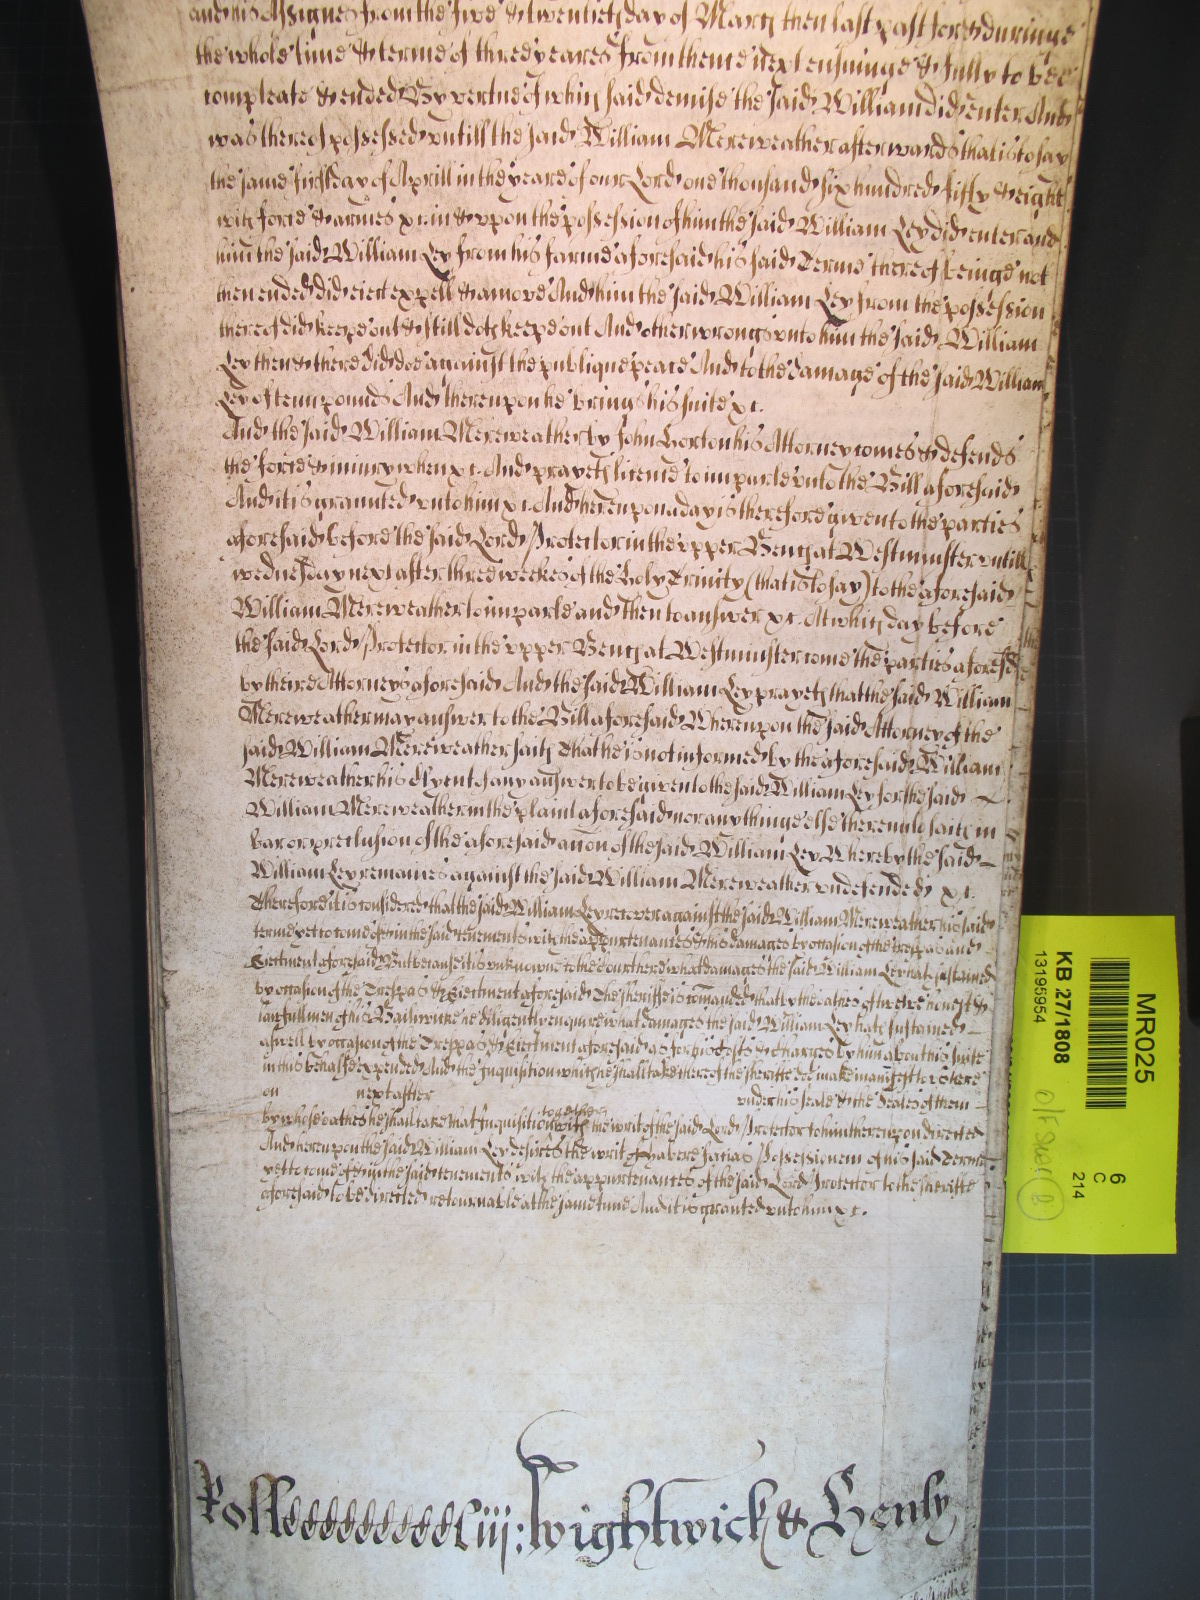 and his Assignes from the five & twentieth day of March then last past for & duringe
the whole time & terme of three yeares from thence next ensuinge & fully to bee
compleate & ended By vertue of which said demise the said William did enter And
was thereof possessed untill the said William Mereweather afterwards that is to say
the same first day of Aprill in the yeare of our Lord one thousand six hundred fifty & eight
with force & armes &c. in & upon the possession of him the said William Ley did enter and
him the said William Ley from his farme aforesaid his said Terme thereof beinge not
then ended did eiect expell & amove And him the said William Ley from the possession
thereof did keepe out & still doth keepe out And other wrongs unto him the said William
Ley then & there did doe against the publique peace And to the damage of the said William
Ley of tenn pounds And thereupon he brings his suite &c.
And the said William Mereweather by John Gorton his Attorney comes & defends
the force & iniury when &c. And prayeth licence to imparle unto the Bill aforesaid
And it is graunted unto him &c. And hereupon a day is therefore given to the parties
aforesaid before the said Lord Protector in the upper Bench at Westminster untill
wednesday next after three weekes of the Holy Trinity (that is to say) to the aforesaid
William Mereweather to imparle and then to answer &c. At which day before
the said Lord Protector in the upper Bench at Westminster come the parties aforesd
by theire Attorneys aforesaid And the said William Ley prayeth that the said William
Mereweather may answer to the Bill aforesaid Whereupon the said Attorney of the
said William Mereweather saith That he is not informed by the aforesaid William
Mereweather his Clyent of any answer to be given to the said William Ley for the said
William Mereweather in the plaint aforesaid nor any thinge else thereunto saith in
bar or preclusion of the aforesaid accon of the said William Ley Whereby the said
William Ley remaines against the said William Mereweather undefended &c.
Therefore it is considered that the said William Ley recover against the said William Mereweather his said
terme yet to come of & in the said tenements with the appurtenances & his damages by occasion of the trespas and
Eiectment aforesaid But because it is unknowne to the Court here what damages the said William Ley hath sustained
by occasion of the Trespas & Eiectment aforesaid The sheriffe is comanded that by the oathes of twelve honest &
lawfull men of his Bailiwicke he diligently enquire what damages the said William Ley hath sustained
aswell by occasion of the Trespas & Eiectment aforesaid as for his Costs & charges by him about his suite
in this behalfe expended And the Inquisition which he shall take thereof the sheriffe doe make manifest to us here
on next after under his seale & the Seales of them
by whose oathes he shall take that Inquisition together with the writ of the said Lord Protector to him thereupon directed
And hereupon the said William Ley desires the writ of Habere facias Possessionem of his said Terme
yet to come of & in the said tenements with the appurtenances of the said Lord Protector to the sheriffe
aforesaid to be directed retournable at the same time And it is granted unto him &c.
Wightwick & Henly
MR025
KB 27/1808
13195954
6
C
214